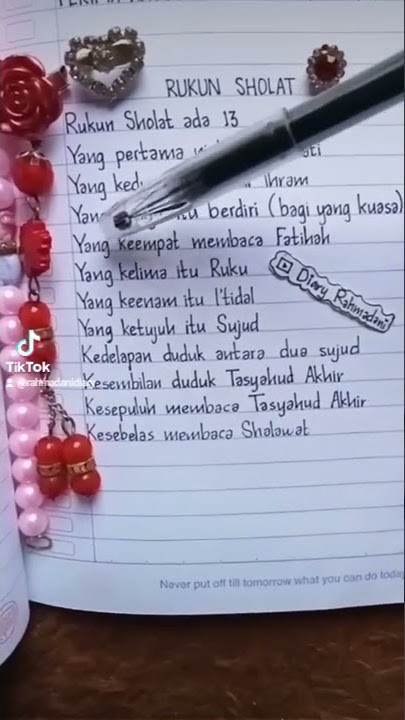 RUKUN SHOLAT
Rukun Sholat ada 13
Yang pertama
Yang Ihram
berdiri (bagi yang kuasa)
Yang keempat membaca Fatihah
Yang kelima itu Ruku
Diary Rahmadani
Yang keenam itu I'tidal
Yang ketujuh itu Sujud
Kedelapan duduk antara dua sujud
TikTok
Kesembilan duduk Tasyahud Akhir
Kesepuluh membaca Tasyahud Akhir
Kesebelas membaca Sholawat
Never put off till tomorrow what you can do today